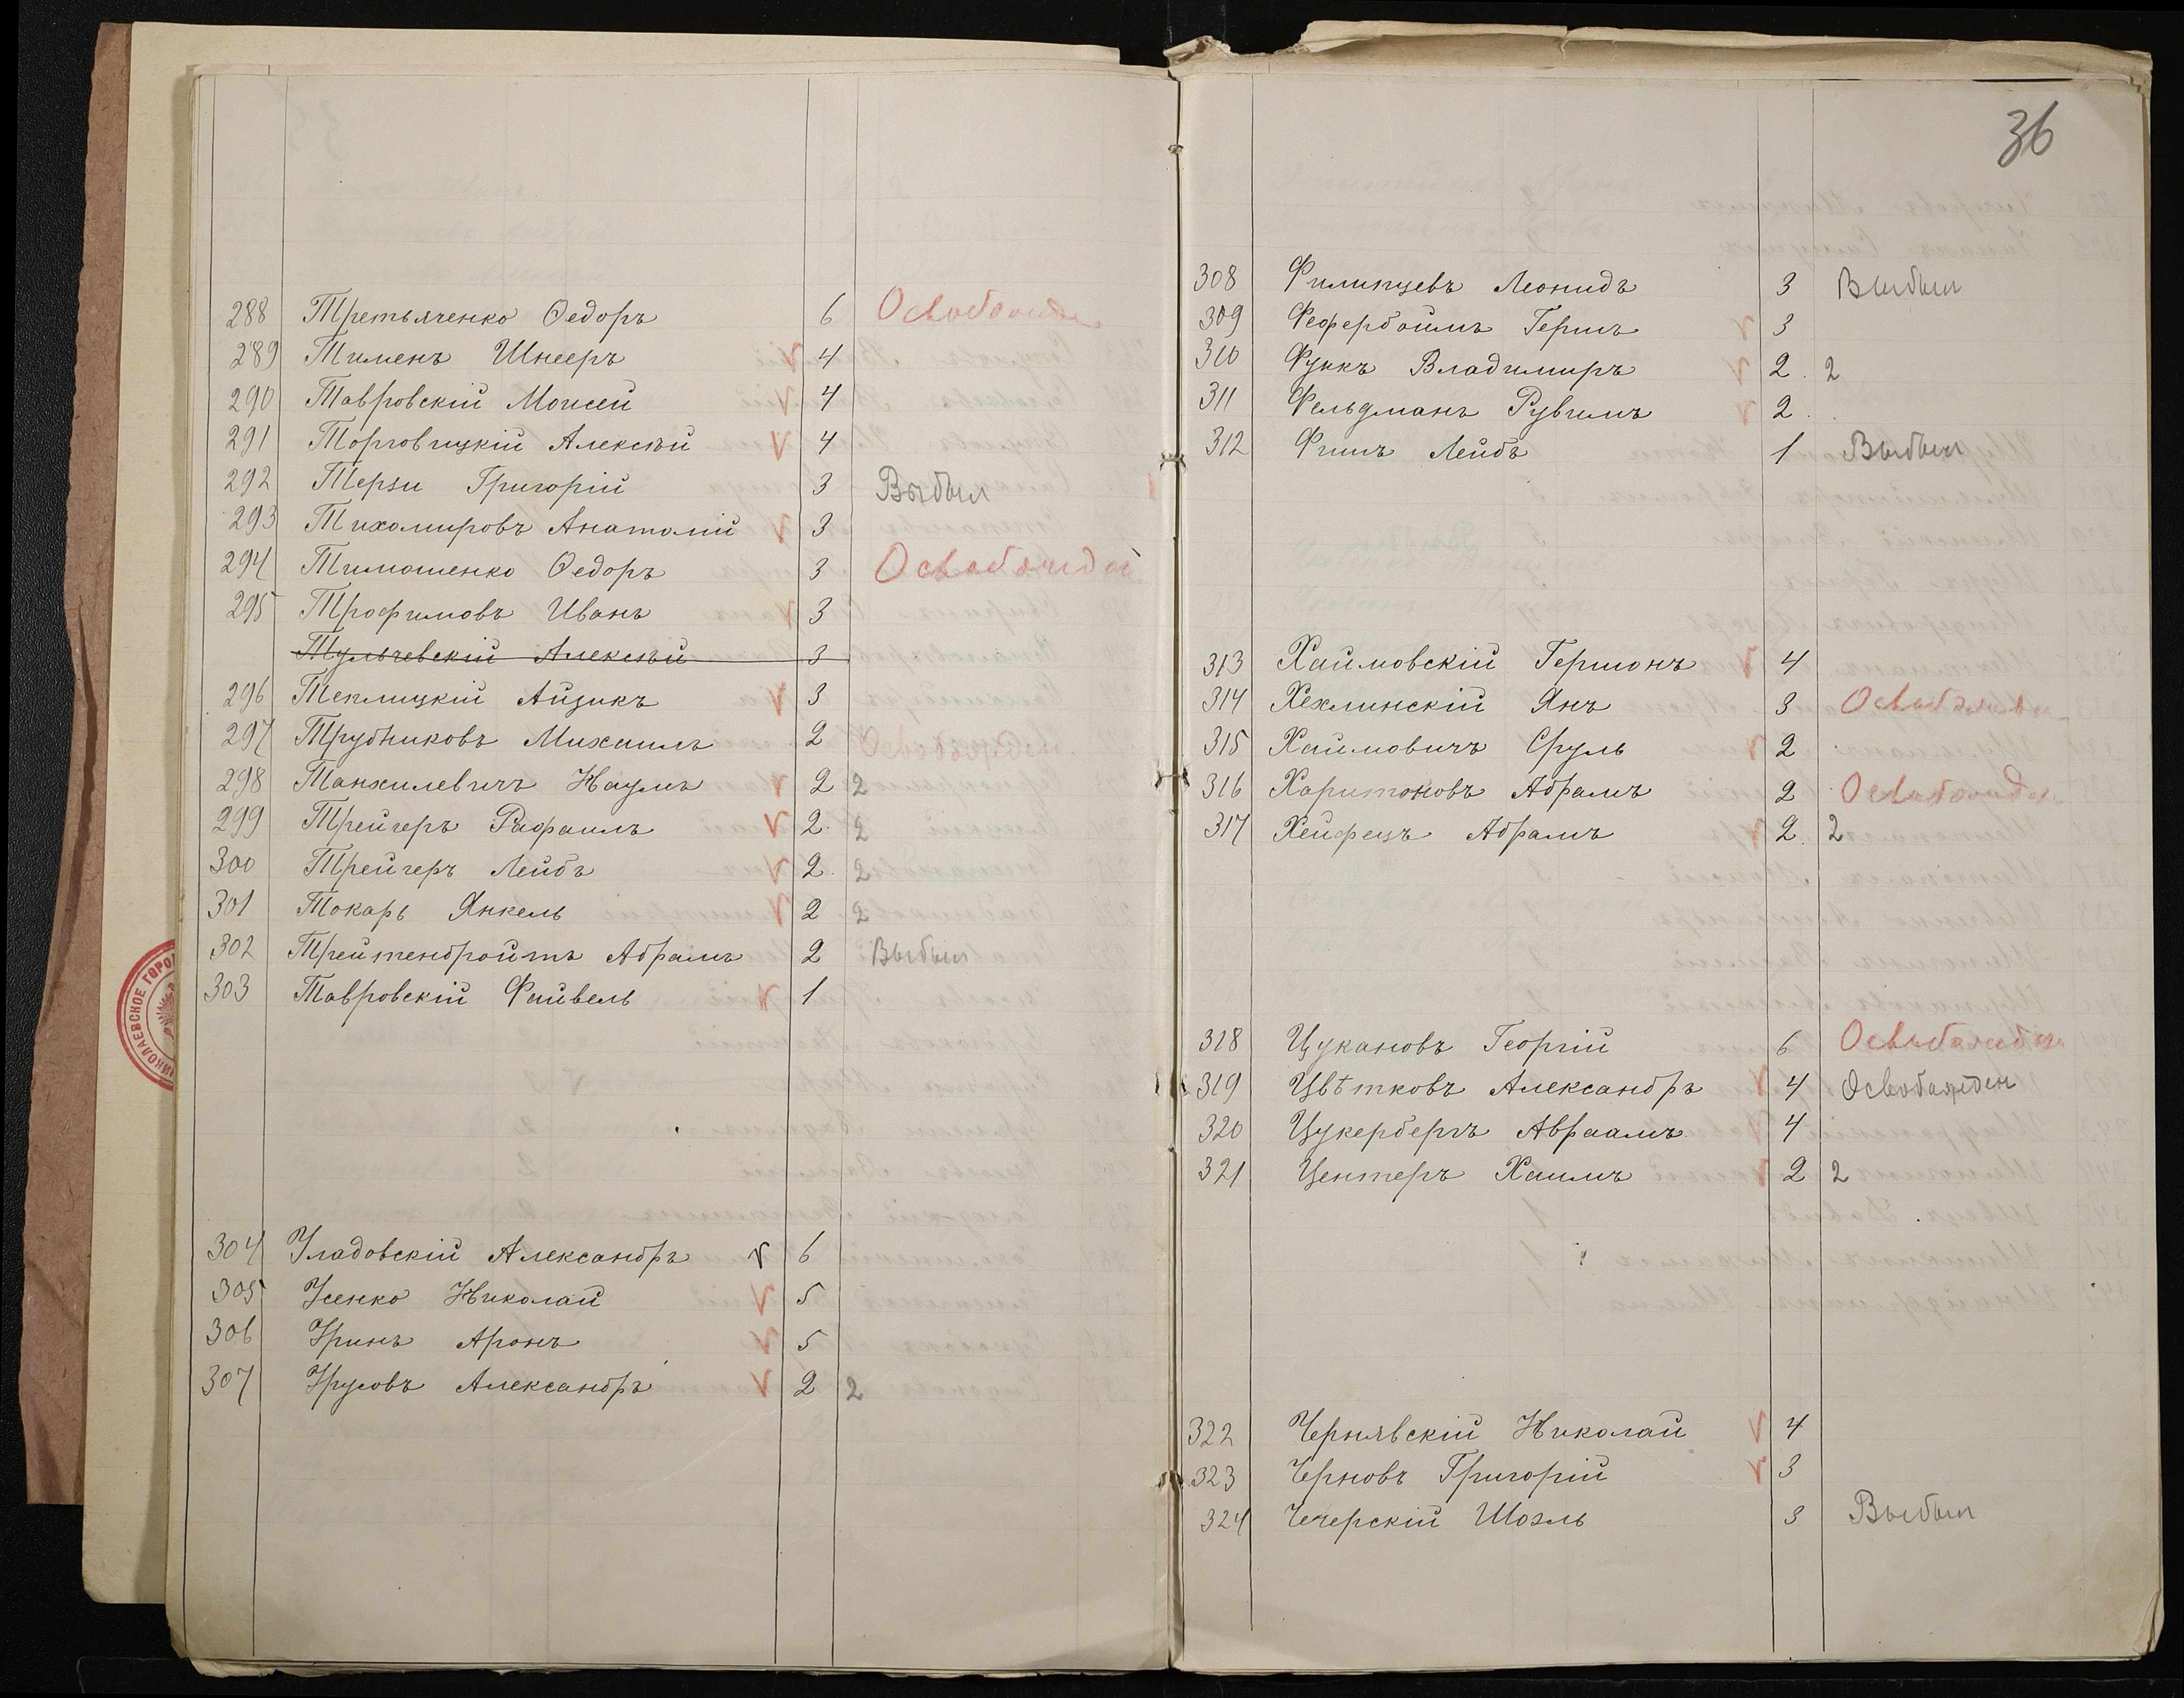 288 Третьяченко Ѳедоръ 6 Освобожден
289 Тименъ Шнееръ V 4
290 Тавровскій Моисей V 4
291 Торговицкій Алексѣй V 4
292 Терзи Григорій 3 Выбыл
293 Тихомировъ Анатолій V 3
294 Тимошенко Ѳедоръ 3 Освобожден
295 Трофимовъ Иванъ V 3
Тульчевскій Алексѣй 3
296 Теплицкій Айзикъ V 3
297 Трубниковъ Михаилъ 2 Освобожден
298 Танхилевичъ Наумъ V 2 2
299 Трейгеръ Рафаилъ V 2. 2
300 Трейгеръ Лейбъ V 2. 2
301 Токарь Янкель V 2 2
302 Трейтенбройтъ Абрамъ 2 Выбыл
303 Тавровскій Файвель V 1
НИКОЛАЕВСКОЕ ГОРОД
304 Уладовскій Александръ V 6
305 Усенко Николай V 5
306 Уринъ Аронъ V 5
307 Урусовъ Александръ V 2 2
36
308 Филипцевъ Леонидъ 3 Выбыл
309 Фефербоймъ Гершъ V 3
310 Функъ Владимиръ V 2. 2
311 Фельдманъ Рувимъ V 2.
312 Фишъ Лейбъ 1 Выбыл
313 Хаймовскій Гермонъ V 4
314 Хехлинскій Янъ 3 Освобожден
315 Хаимовичъ Сруль V 2
316 Харитоновъ Абрамъ 2 Освобожден
317 Хейфецъ Абрамъ V 2. 2
318 Цукановъ Георгій 6 Освобожден
319 Цвѣтковъ Александръ V 4 Освобожден
320 Цукербергъ Авраамъ V 4
321 Центеръ Хаимъ V 2 2
322 Чернявскій Николай V 4
323 Черновъ Григорій V 3
324 Чечерскій Шоэль 3 Выбыл